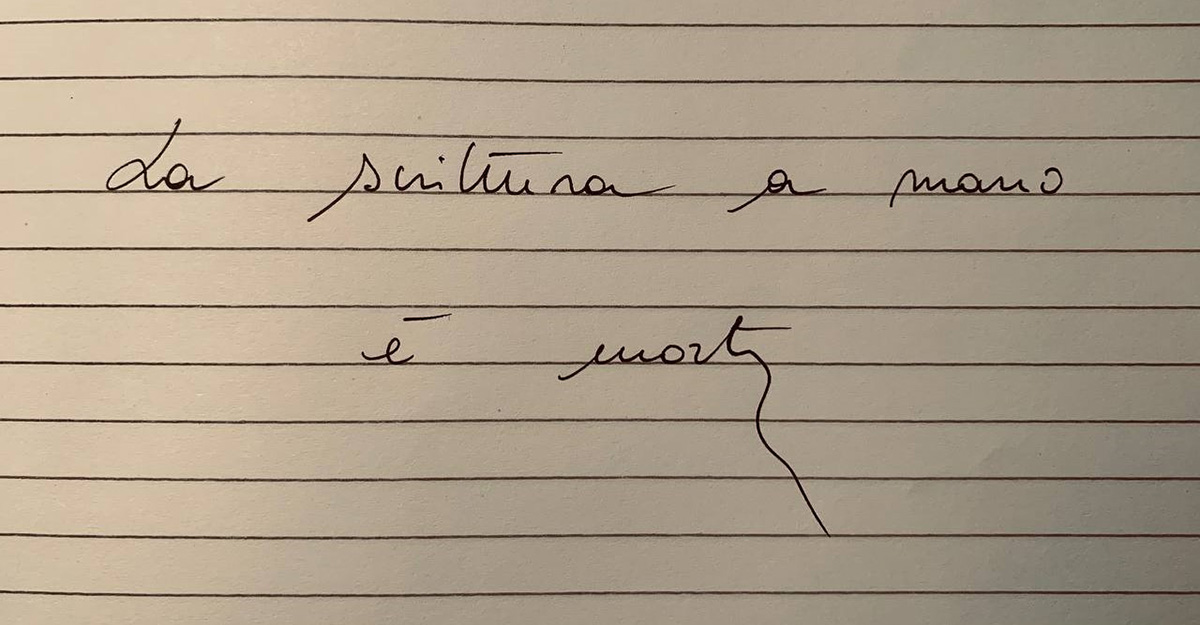 La scrittura a mano
è mort